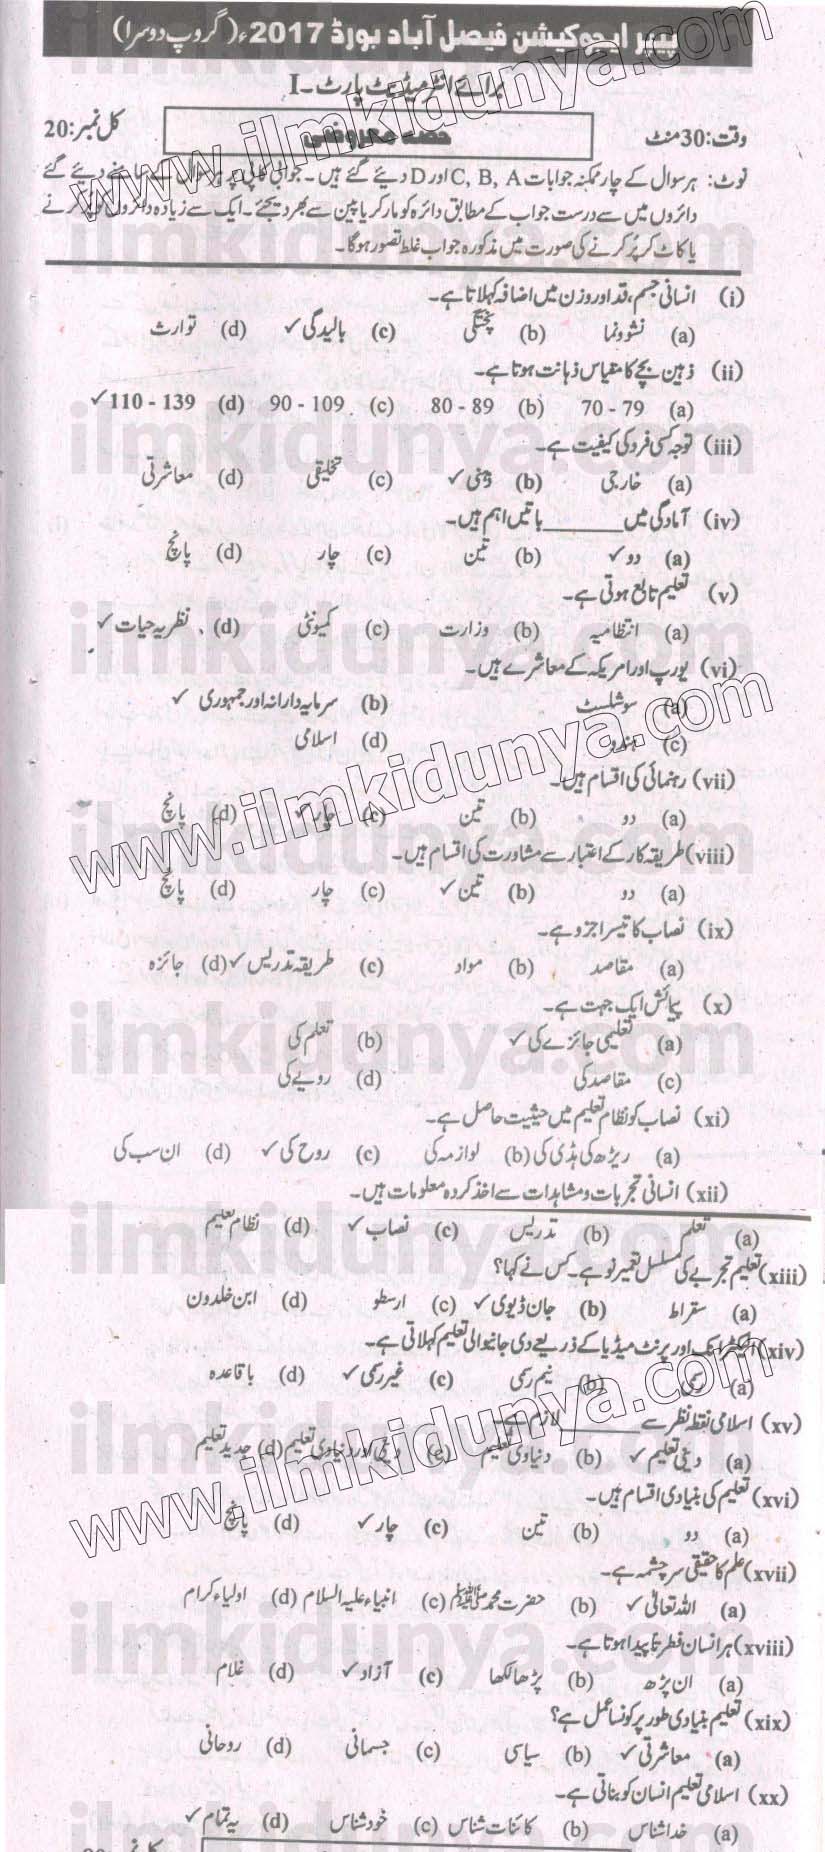 پیپر ایجوکیشن فیصل آباد بورڈ 2017ء (گروپ دوسرا)
برائے انٹرمیڈیٹ پارٹ۔I
وقت: 30 منٹ حصہ معروضی کل نمبر: 20
نوٹ: ہر سوال کے چار ممکنہ جوابات C, B, A اور D دیئے گئے ہیں۔ جوابی کاپی پر ہر سوال کے سامنے دیئے گئے
دائروں میں سے درست جواب کے مطابق دائرہ کو مارکر یا پین سے بھر دیجئے۔ ایک سے زیادہ دائروں کو پُر کرنے
یا کاٹ کر پُر کرنے کی صورت میں مذکورہ جواب غلط تصور ہوگا۔
(i) انسانی جسم، قد اور وزن میں اضافہ کہلاتا ہے۔
(a) نشوونما (b) پختگی (c) بالیدگی ✓ (d) توارث
(ii) ذہین بچے کا مقیاس ذہانت ہوتا ہے۔
(a) 70 - 79 (b) 80 - 89 (c) 90 - 109 (d) 110 - 139 ✓
(iii) توجہ کسی فرد کی کیفیت ہے۔
(a) خارجی (b) ذہنی ✓ (c) تخلیقی (d) معاشرتی
(iv) آمادگی میں ______ باتیں اہم ہیں۔
(a) دو ✓ (b) تین (c) چار (d) پانچ
(v) تعلیم تابع ہوتی ہے۔
(a) انتظامیہ (b) وزارت (c) کمیونٹی (d) نظریہ حیات ✓
(vi) یورپ اور امریکہ کے معاشرے ہیں۔
(a) سوشلسٹ (b) سرمایہ دارانہ اور جمہوری ✓
(c) ہندو (d) اسلامی
(vii) رہنمائی کی اقسام ہیں۔
(a) دو (b) تین (c) چار ✓ (d) پانچ
(viii) طریقہ کار کے اعتبار سے مشاورت کی اقسام ہیں۔
(a) دو (b) تین ✓ (c) چار (d) پانچ
(ix) نصاب کا تیسرا جزو ہے۔
(a) مقاصد (b) مواد (c) طریقہ تدریس ✓ (d) جائزہ
(x) پیمائش ایک جہت ہے۔
(a) تعلیمی جائزے کی ✓ (b) تعلم کی
(c) مقاصد کی (d) رویے کی
(xi) نصاب کو نظام تعلیم میں حیثیت حاصل ہے۔
(a) ریڑھ کی ہڈی کی (b) لوازمہ کی (c) روح کی ✓ (d) ان سب کی
(xii) انسانی تجربات و مشاہدات سے اخذ کردہ معلومات ہیں۔
(a) تعلم (b) تدریس (c) نصاب ✓ (d) نظام تعلیم
(xiii) تعلیم تجربے کی مسلسل تعمیر نو ہے۔ کس نے کہا؟
(a) سقراط (b) جان ڈیوی ✓ (c) ارسطو (d) ابن خلدون
(xiv) الیکٹرانک اور پرنٹ میڈیا کے ذریعے دی جانیوالی تعلیم کہلاتی ہے۔
(a) رسمی (b) نیم رسمی (c) غیر رسمی ✓ (d) باقاعدہ
(xv) اسلامی نقطہ نظر سے ______ لازم ہے۔
(a) دینی تعلیم ✓ (b) دنیاوی تعلیم (c) دینی اور دنیاوی تعلیم (d) جدید تعلیم
(xvi) تعلیم کی بنیادی اقسام ہیں۔
(a) دو (b) تین (c) چار ✓ (d) پانچ
(xvii) علم کا حقیقی سرچشمہ ہے۔
(a) اللہ تعالیٰ ✓ (b) حضرت محمد ﷺ (c) انبیاء علیہ السلام (d) اولیاء کرام
(xviii) ہر انسان فطرتاً پیدا ہوتا ہے۔
(a) ان پڑھ (b) پڑھا لکھا (c) آزاد ✓ (d) غلام
(xix) تعلیم بنیادی طور پر کونسا عمل ہے؟
(a) معاشرتی ✓ (b) سیاسی (c) جسمانی (d) روحانی
(xx) اسلامی تعلیم انسان کو بناتی ہے۔
(a) خدا شناس (b) کائنات شناس (c) خود شناس (d) یہ تمام ✓
www.ilmkidunya.com
www.ilmkidunya.com
www.ilmkidunya.com